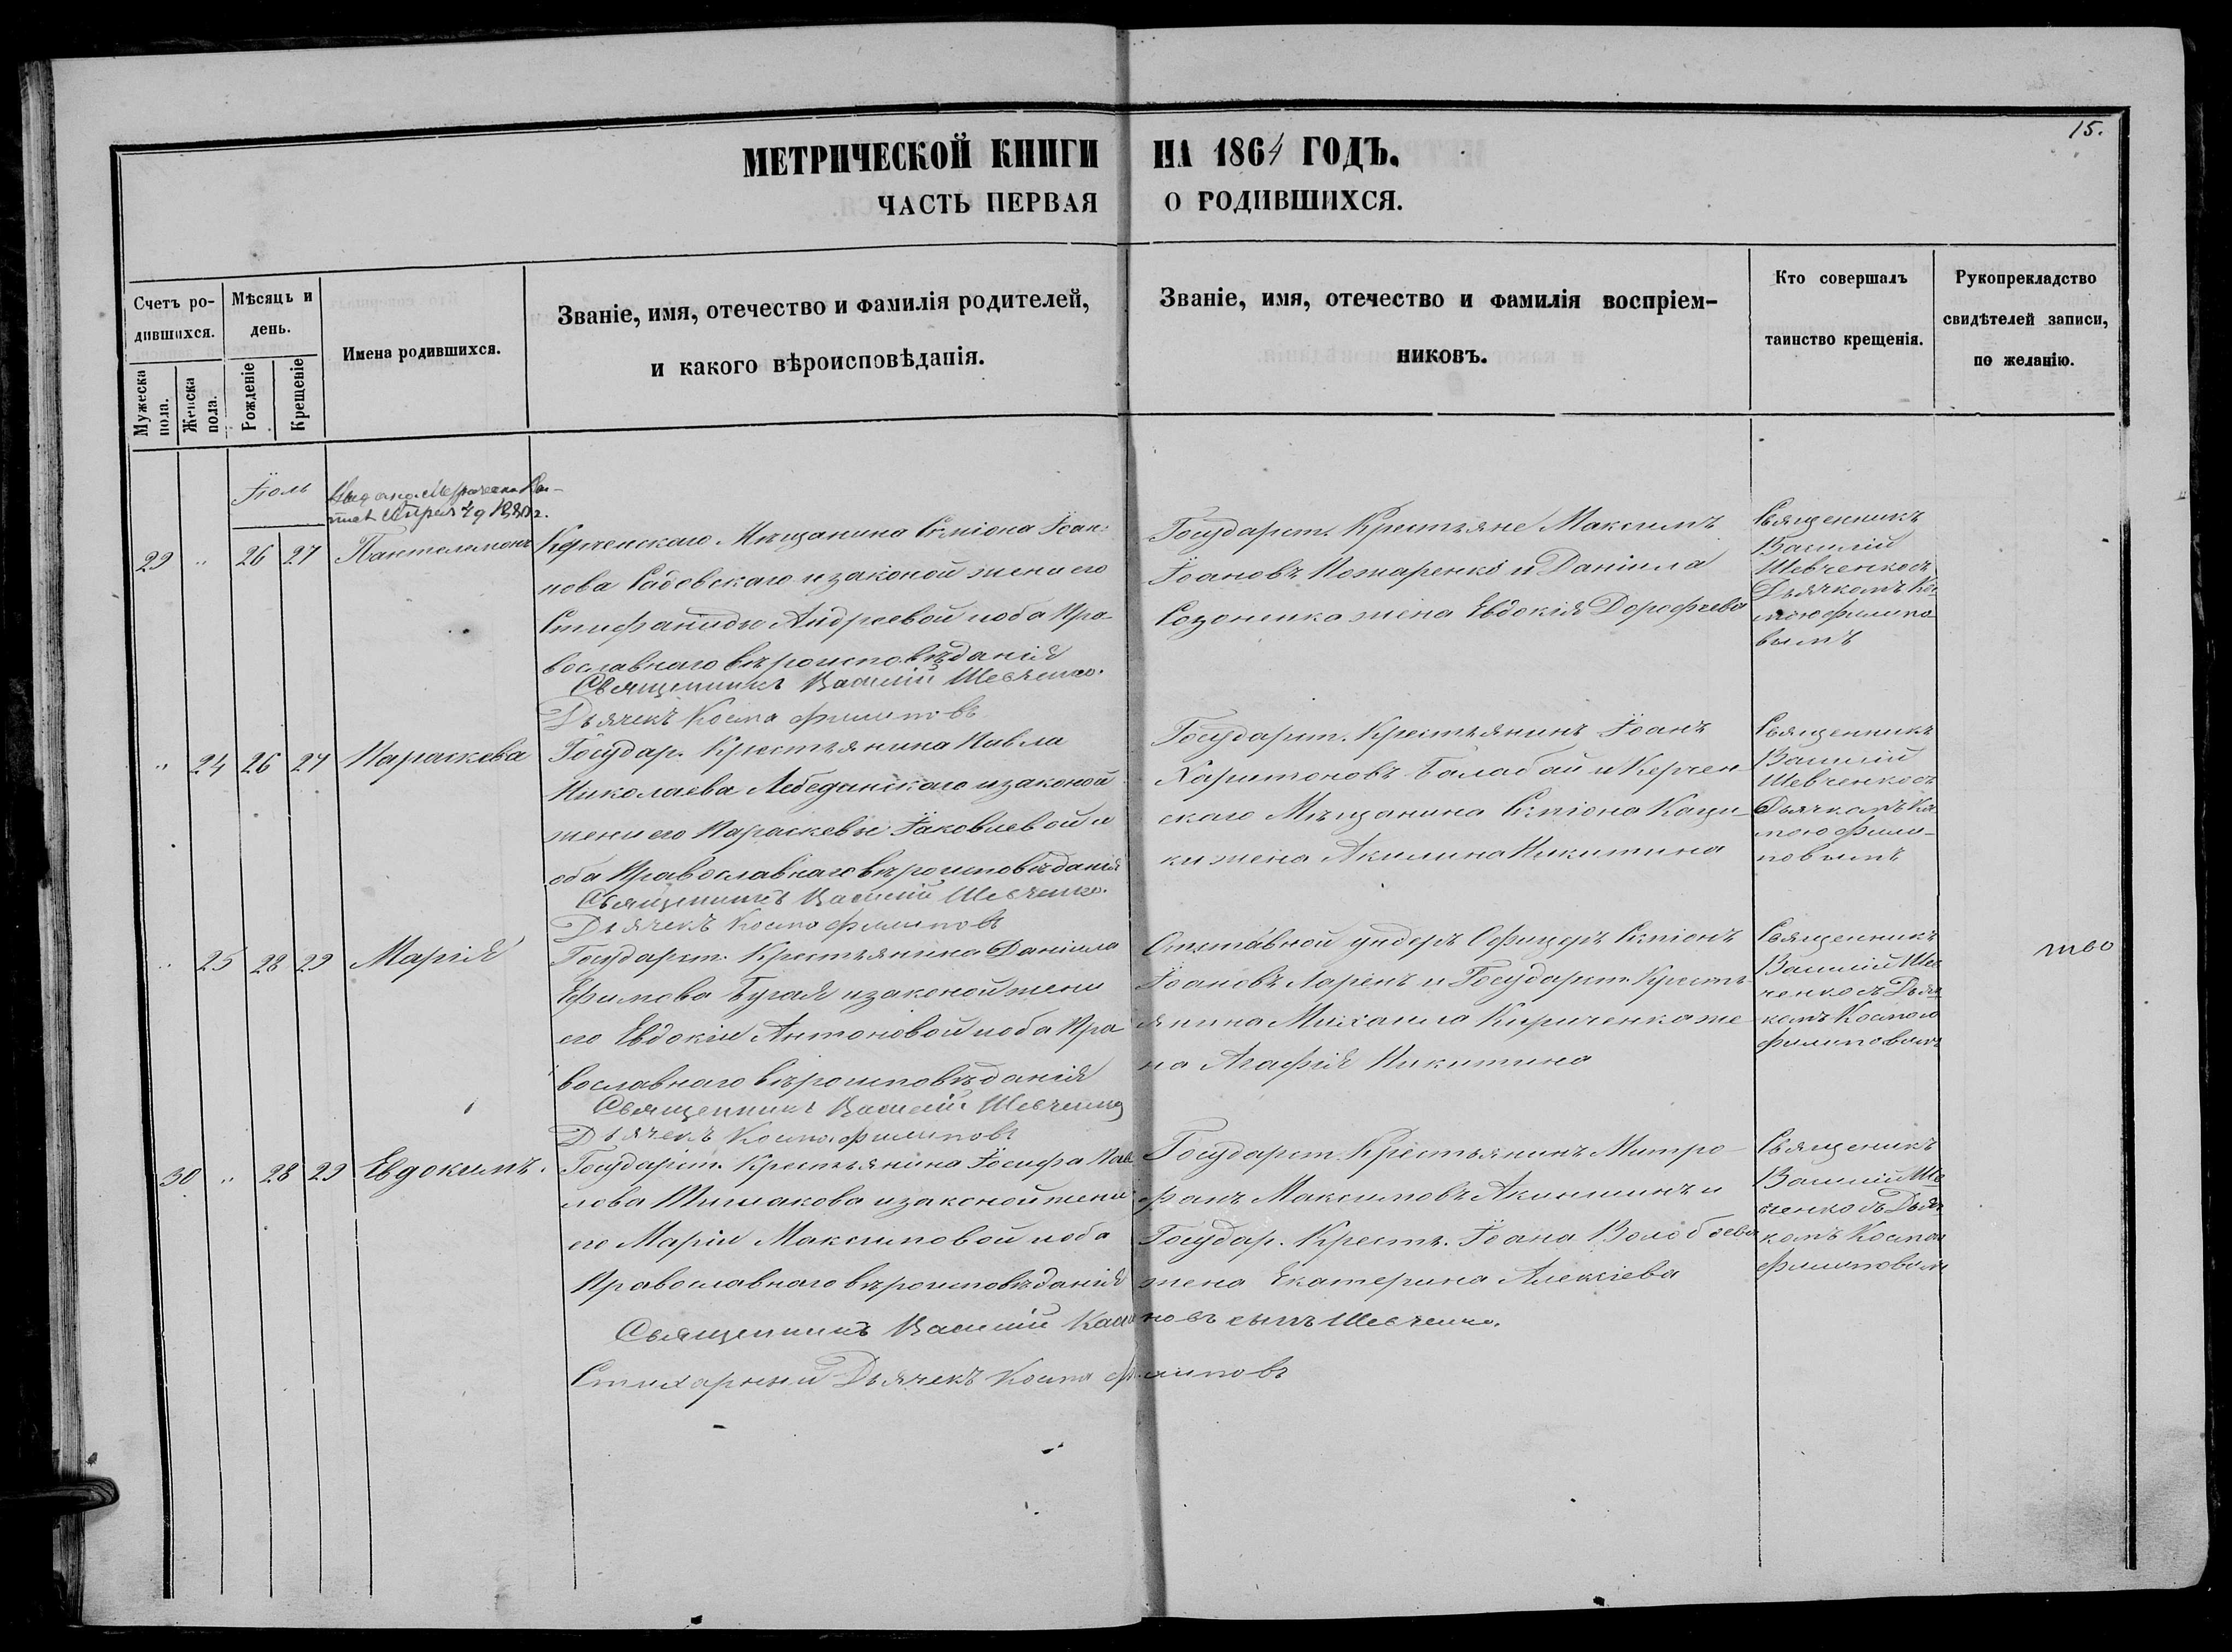 15.
МЕТРИЧЕСКОЙ КНИГИ НА 1864 ГОДЪ.
ЧАСТЬ ПЕРВАЯ О РОДИВШИХСЯ.
Счетъ ро-
дившихся.
Мужеска
пола.
Женска
пола.
Мѣсяцъ и
день.
Рожденіе
Крещеніе
Имена родившихся.
Званіе, имя, отечество и фамилія родителей,
и какого вѣроисповѣданія.
Званіе, имя, отечество и фамилія воспріем-
никовъ.
Кто совершалъ
таинство крещенія.
Рукоприкладство
свидѣтелей записи,
по желанію.
Іюль
29 " 26 27 Пантелимонъ
Керченскаго Мѣщанина Симіона Іоан-
нова и законой жени его
Стифаниды Андреевой и оба Пра-
вославнаго вѣроисповѣданія
Священникъ Василій Шевченко.
Дьячекъ Косма Филиповъ
Государст. Крестьяне Максимъ
Іоановъ и Даніила
жена Евдокія Дорофѣева
Священникъ
Василій
Шевченко съ
Дьячкомъ Кос-
мою Филипо-
вымъ
" 24 26 27 Параскева
Государ. Крестьянина Павла
Николаева Лебединскаго и законой
жени его Параскевы Іаковлевой и
оба Православнаго вѣроисповѣданія
Священникъ Василій Шевченко.
Дьячекъ Косма Филиповъ
Государст. Крестьянинъ Іоанъ
Харитоновъ Балабай и Керчен-
скаго Мѣщанина Симіона
жена Акилина Никитина
Священникъ
Василій
Шевченко съ
Дьячкомъ Кос-
мою Фили-
повымъ
" 25 28 29 Марія
Государст. Крестьянина Даніила
Ефимова Бугая и законой жени
его Евдокіи Антоновой и оба Пра-
вославнаго вѣроисповѣданія
Священникъ Василій Шевченко
Дьячекъ Косма Филиповъ
Отставной ундеръ Офицеръ Симіонъ
Іоановъ Ларінъ и Государст. Кресть-
янина Михаила Кириченка же-
на Агафія Никитина
Священникъ
Василій Шев-
ченко съ Дьяч-
комъ Космою
Филиповымъ
тво
30 " 28 29 Евдокимъ.
Государст. Крестьянина Іосифа Пав-
лова и законой жени
его Маріи Максимовой и оба
Православнаго вѣроисповѣданія
Государст. Крестьянинъ Митро-
фанъ Максимовъ Акиншинъ и
Государ. Крестъ. Іоана Волобоева
жена Екатерина Алексіева
Священикъ
Василій Шев-
ченко съ Дьяч-
комъ Космою
Филиповымъ
Священникъ Василій сынъ Шевченко.
Стихарный Дьячекъ Косма Филиповъ